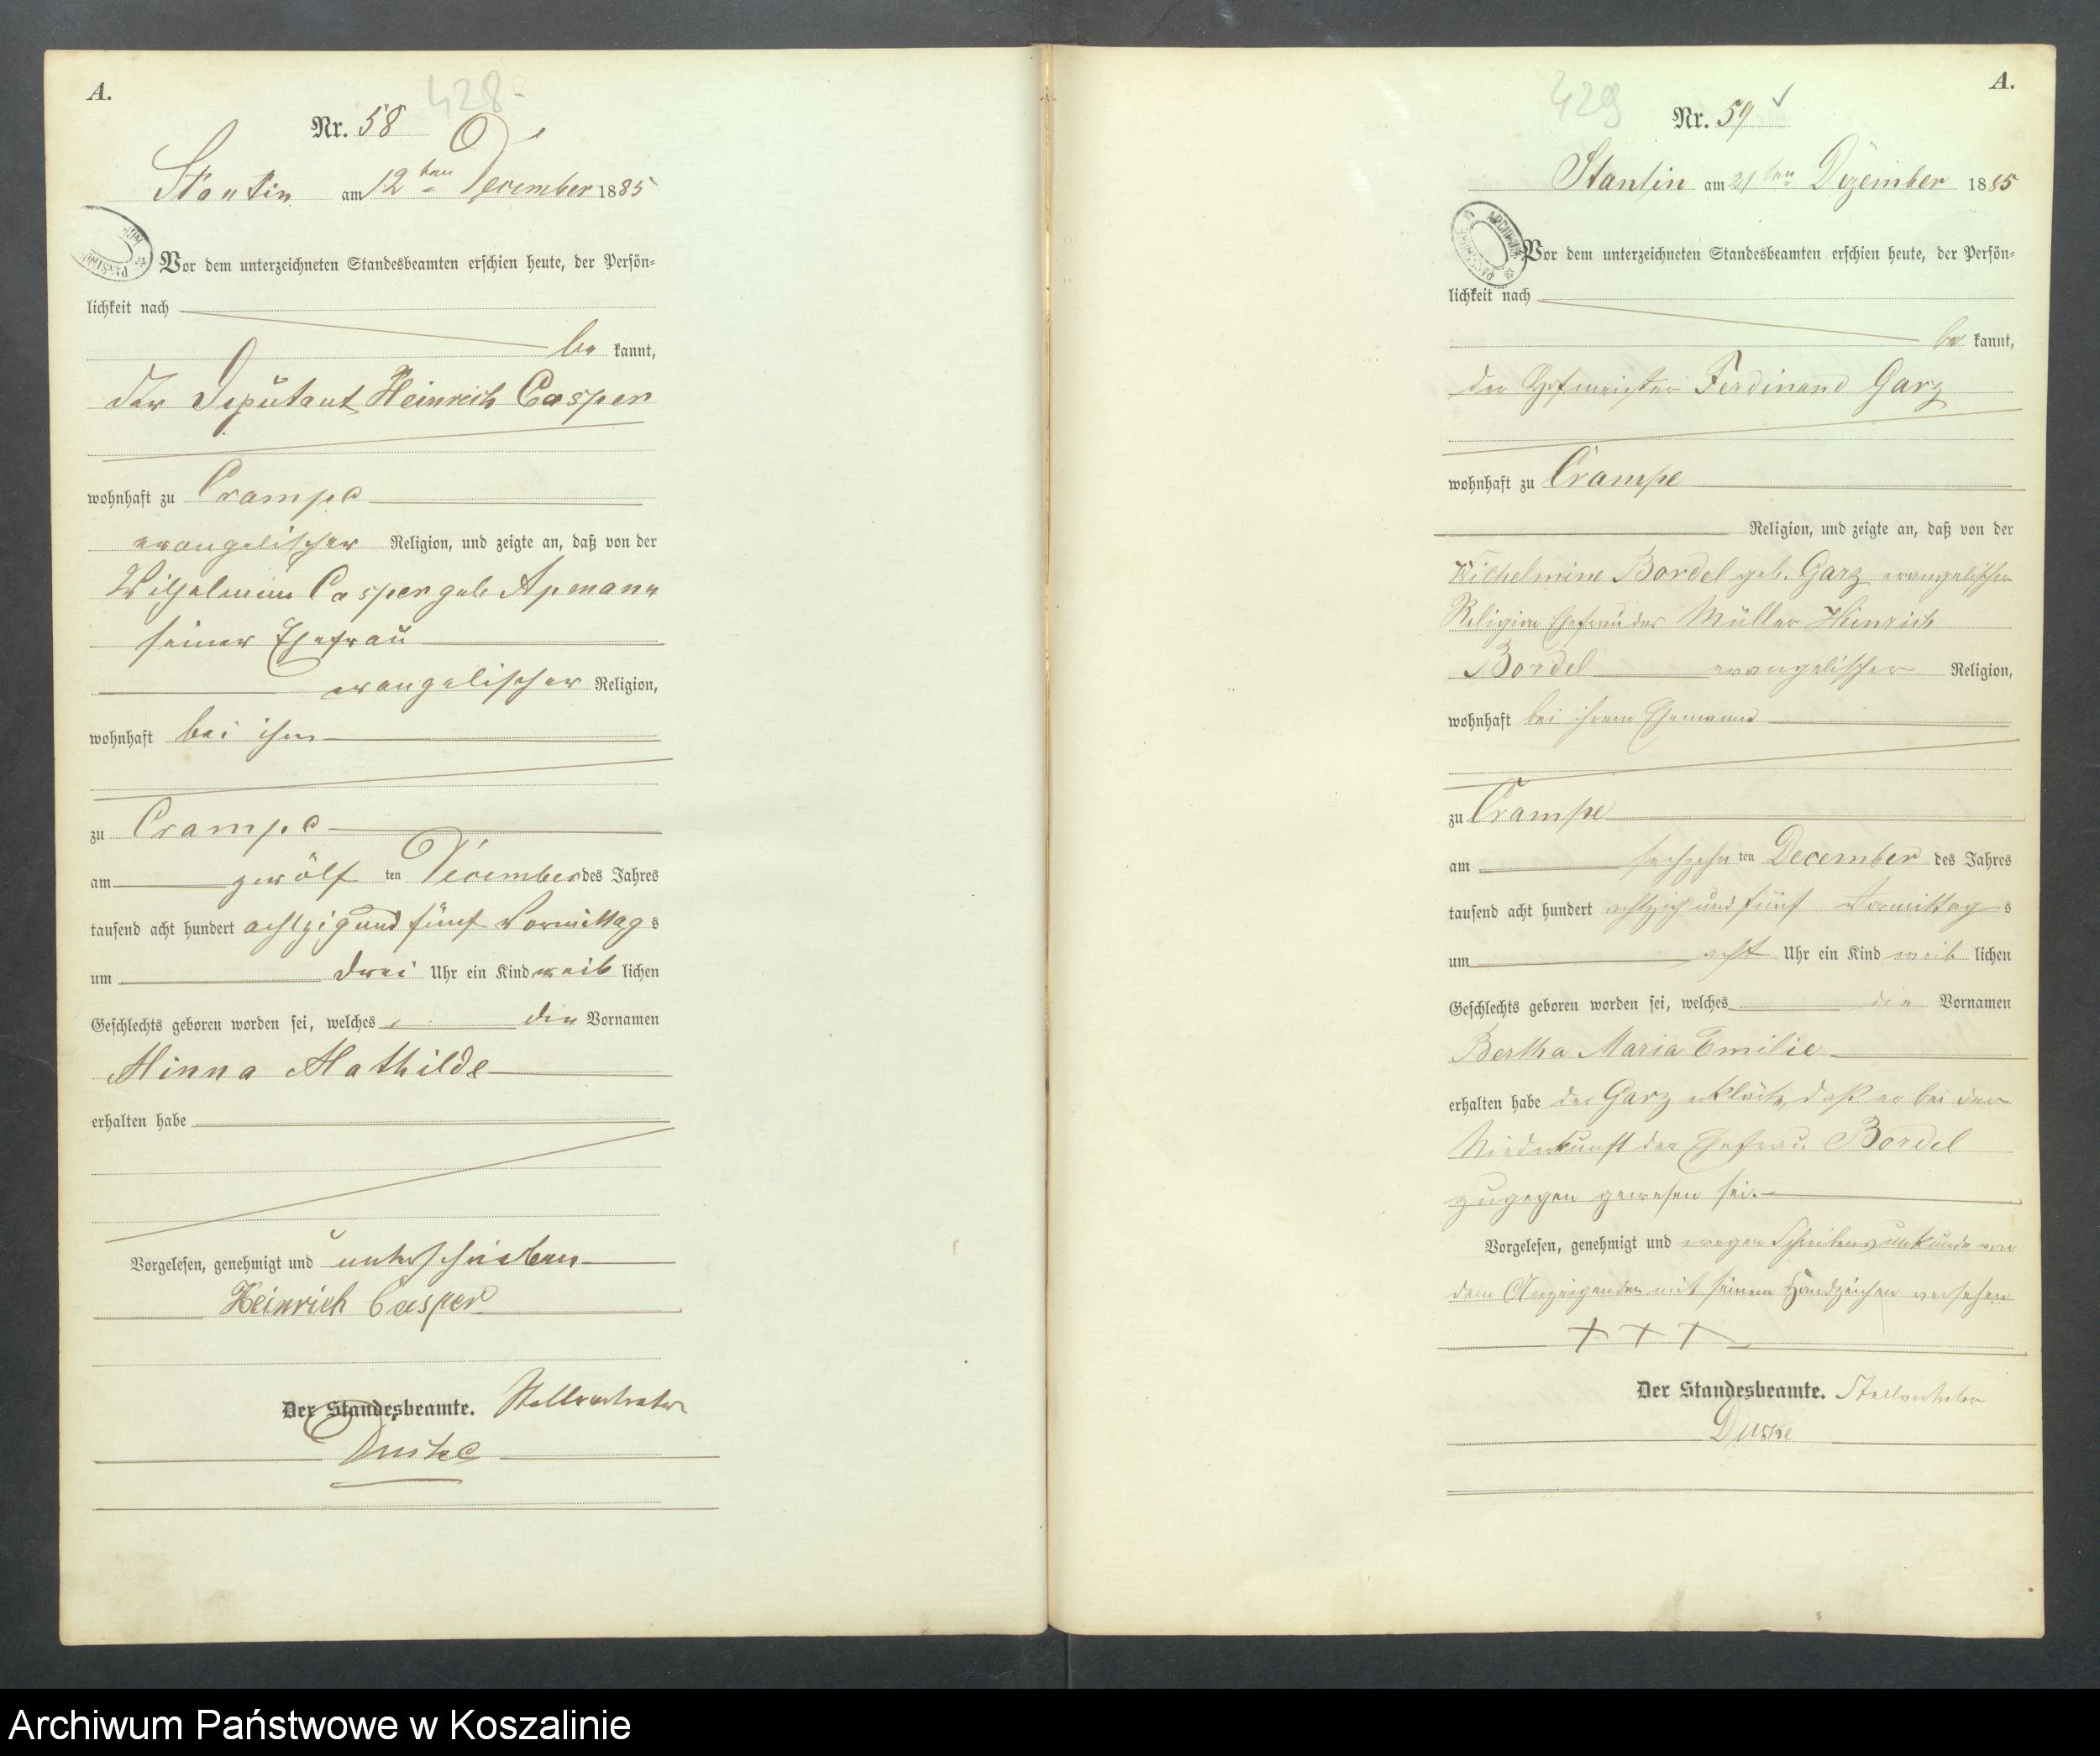 A.
428
Nr. 58
Stantin am 12ten December 1885
Vor dem unterzeichneten Standesbeamten erschien heute, der Persön=
lichkeit nach
be kannt,
der Deputant Heinrich Casper
wohnhaft zu Crampe
evangelischer Religion, und zeigte an, daß von der
Wilhelmine Casper geb Apmann
seiner Ehefrau
evangelischer Religion,
wohnhaft bei ihm
zu Crampe
am zwölf ten December des Jahres
tausend acht hundert achtzig und fünf Vormittag s
um drei Uhr ein Kind weib lichen
Geschlechts geboren worden sei, welches den Vornamen
Minna Mathilde
erhalten habe
Vorgelesen, genehmigt und unterschrieben
Heinrich Casper
Der Standesbeamte. Stellvertreter
Duske
A.
429
Nr. 59
Stantin am 21ten Dezember 1885
ARCHIWUM PAŃSTWOWE
Vor dem unterzeichneten Standesbeamten erschien heute, der Persön=
lichkeit nach
be kannt,
der Hofmeister Ferdinand Garz
wohnhaft zu Crampe
Religion, und zeigte an, daß von der
Wilhelmine Bordel geb. Garz evangelischer
Religion Ehefrau des Müller Heinrich
Bordel evangelischer Religion,
wohnhaft bei ihrem Ehemann
zu Crampe
am sechzehn ten December des Jahres
tausend acht hundert achtzig und fünf Vormittag s
um acht Uhr ein Kind weib lichen
Geschlechts geboren worden sei, welches die Vornamen
Bertha Maria Emilie
erhalten habe der Garz erklärte, daß er bei der
Niederkunft der Ehefrau Bordel
zugegen gewesen sei.
Vorgelesen, genehmigt und wegen Schreibensunkunde von
dem Anzeigenden mit seinem Handzeichen versehen
+ + +
Der Standesbeamte. Stellvertreter
Duske
Archiwum Państwowe w Koszalinie